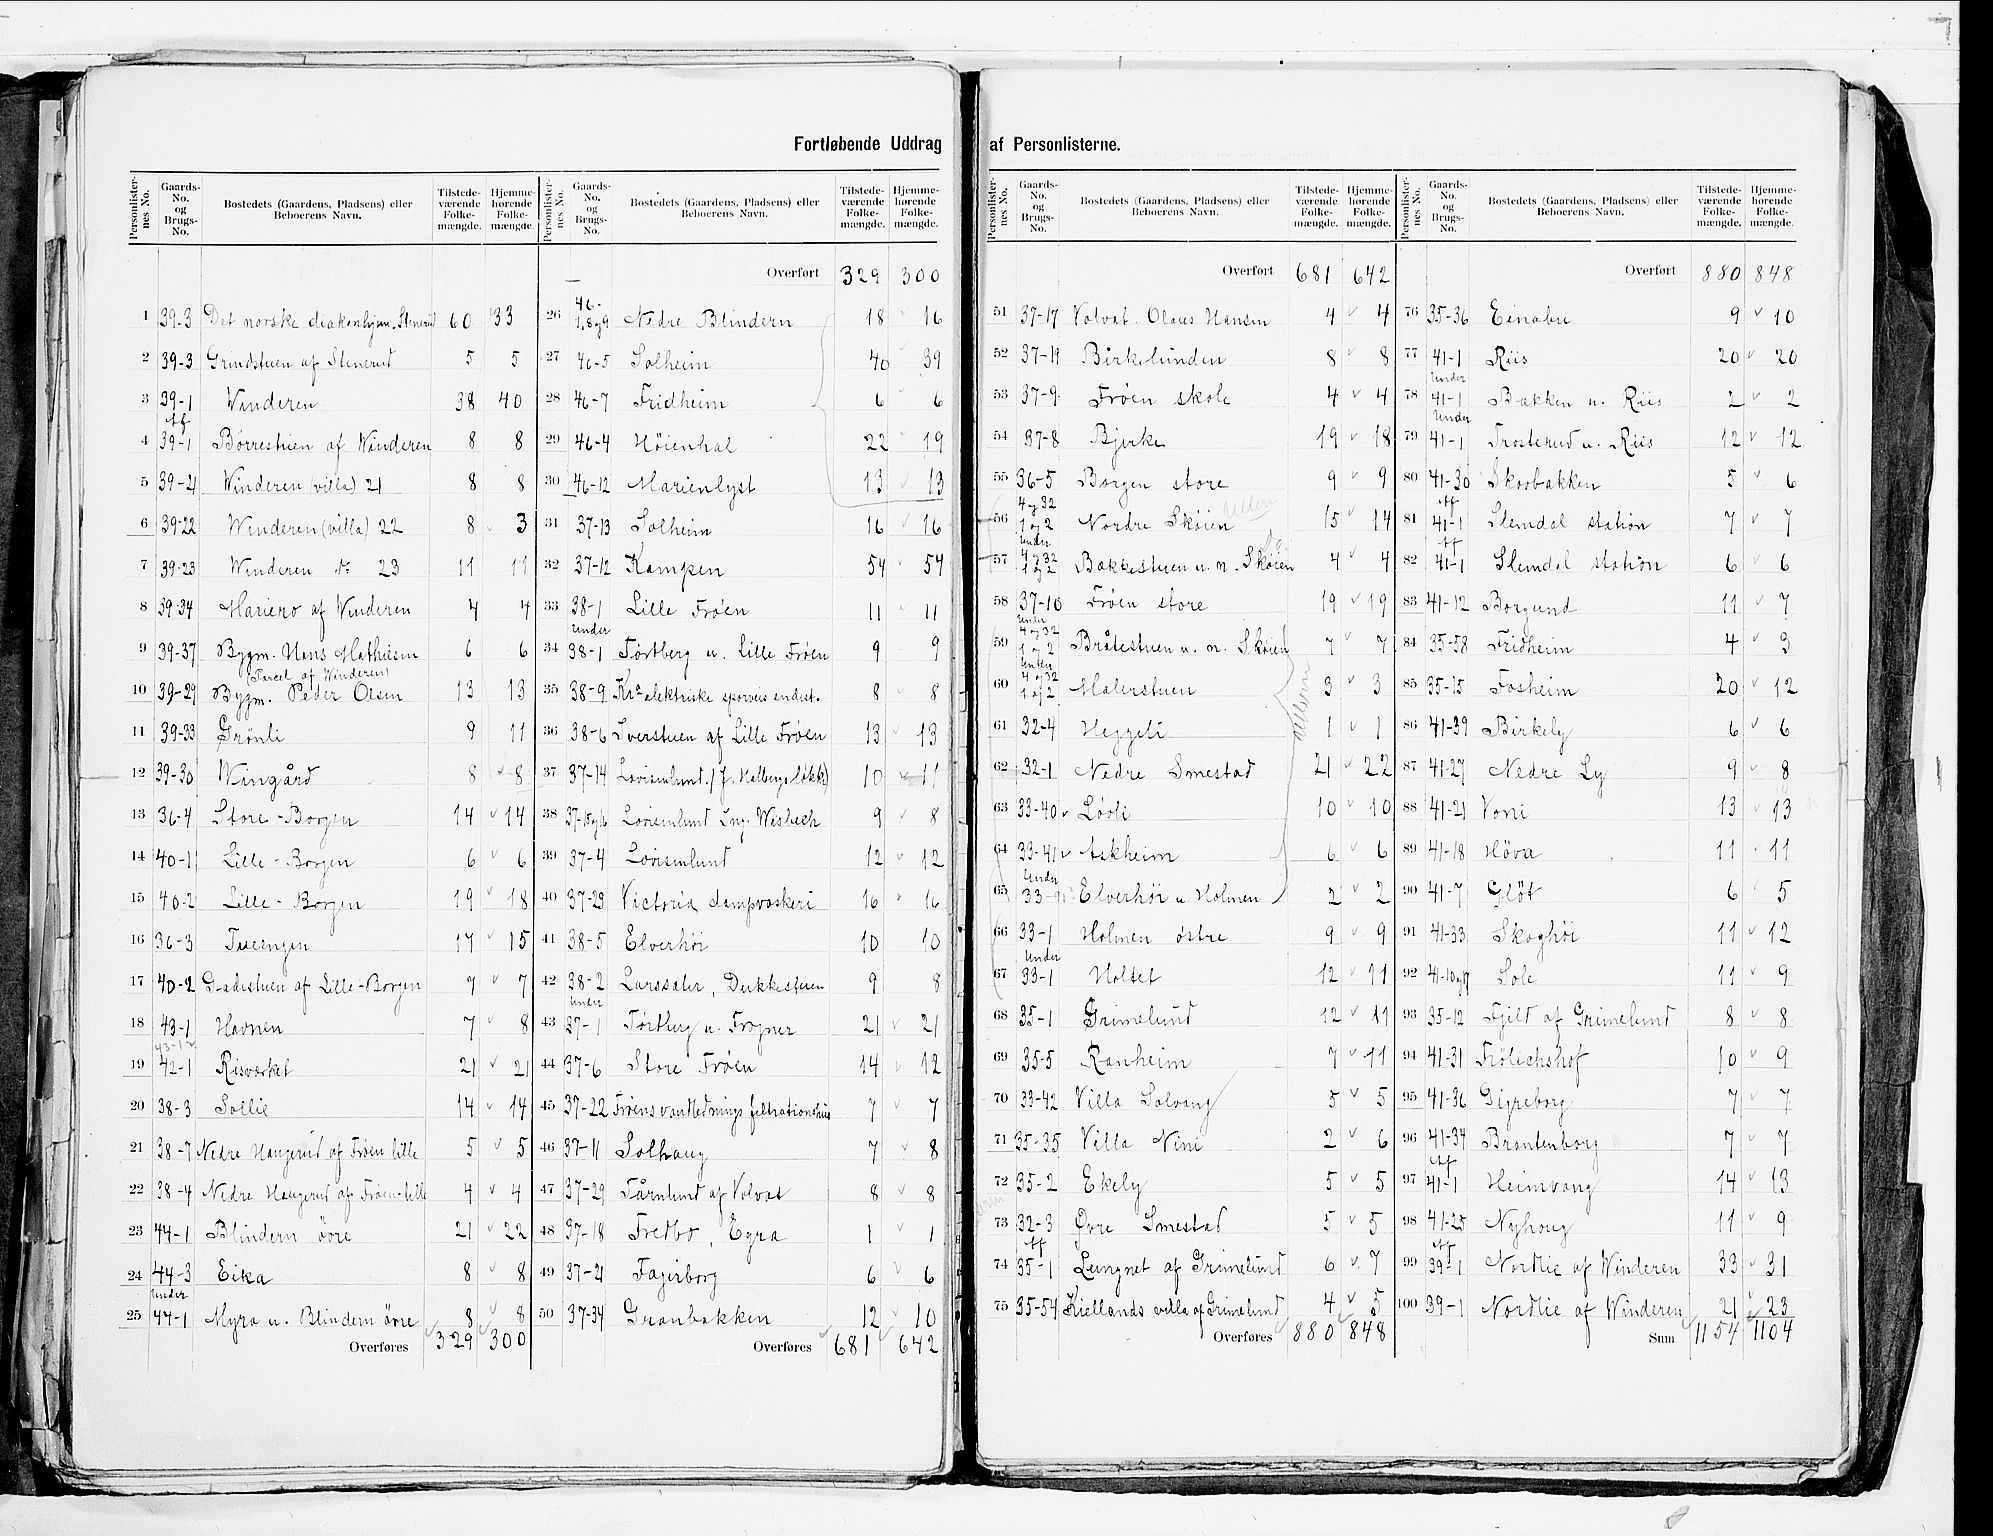 Fortløbende Uddrag af Personlisterne.
Personlister-nes No. Gaards-No. og Brugs-No. Bostedets (Gaardens, Pladsens) eller Beboerens Navn. Tilstede-værende Folke-mængde. Hjemme-hørende Folke-mængde.
1 39-3 Det norske diakonhjem. Stenerud 60 33
2 39-3 Grindstuen af Stenerud 5 5
3 39-1 Winderen 38 40
4 Af 39-1 Børrestuen af Winderen 8 8
5 39-21 Winderen (villa) 21 8 8
6 39-22 Winderen (villa) 22 8 3
7 39-23 Winderen do 23 11 11
8 39-34 Mariero af Winderen 4 4
9 39-37 Bygm. Hans Mathiesen 6 6
(Parcel af Winderen)
10 39-29 Bygm. Peder Olsen 13 13
11 39-33 Grønli 9 11
12 39-30 Wingård 8 8
13 36-4 Store-Borgen 14 14
14 40-1 Lille-Borgen 6 6
15 40-2 Lille-Borgen 19 18
16 36-3 Tuengen 17 15
17 40-2 Gadestuen af Lille-Borgen 7 7
18 43-1 Havnen 7 8
19 43-1 42-1 Risværket 21 21
20 38-3 Sollie 14 14
21 38-7 Nedre Haugerud af Frøen lille 5 5
22 38-4 Nedre Haugerud af Frøen-lille 4 4
23 44-1 Blindern övre 21 22
24 44-3 Eika 8 8
25 Under 44-1 Myra u. Blindern övre 8 8
Overføres 329 300
Personlister-nes No. Gaards-No. og Brugs-No. Bostedets (Gaardens, Pladsens) eller Beboerens Navn. Tilstede-værende Folke-mængde. Hjemme-hørende Folke-mængde.
Overført 329 300
26 46-1,8og9 Nedre Blindern 18 16
27 46-5 Solheim 40 39
28 46-7 Fridheim 6 6
29 46-4 Høienhal 22 19
30 46-12 Marienlyst 13 13
31 37-13 Solheim 16 16
32 37-12 Kampen 54 54
33 38-1 Lille Frøen 11 11
34 Under 38-1 Tørtberg u. Lille Frøen 9 9
35 38-9 Kra elektriske sporveis endest. 8 8
36 38-6 Sverstuen af Lille Frøen 13 13
37 37-14 Lovisenlund. (J. Holbergs løkk) 10 11
38 37-15og16 Lovisenlund Ing. Wisbech 9 8
39 37-4 Lovisenlund 12 12
40 37-23 Victoria dampvaskeri 16 16
41 38-5 Elverhöi 10 10
42 38-2 Larssaler, Dukkestuen 9 8
43 Under 37-1 Tørtberg u. Frogner 21 21
44 37-6 Store Frøen 14 12
45 37-22 Frøens vandlednings filtrationshus 7 7
46 37-11 Solhaug 7 8
47 37-29 Tårnlund af Volvat 8 8
48 37-18 Fredbo, Egra 1 1
49 37-21 Fagerborg 6 6
50 37-34 Granbakken 12 10
Overføres 681 642
Personlister-nes No. Gaards-No. og Brugs-No. Bostedets (Gaardens, Pladsens) eller Beboerens Navn. Tilstede-værende Folke-mængde. Hjemme-hørende Folke-mængde.
Overført 681 642
51 37-17 Volvat. Olaus Hansen 4 4
52 37-19 Birkelunden 8 8
53 37-9 Frøen skole 4 4
54 37-8 Bjerke 19 18
55 36-5 Borgen store 9 9
56 4og32 1og2 Nordre Skøien Ullern 15 14
57 Under 4og32 1og2 Bakkestuen u. n. Skøien 4 4
58 37-10 Frøen store 19 19
59 Under 4og32 1og2 Bråtestuen u. n. Skøien 7 7
60 Under 4og32 1og2 Malerstuen 3 3
61 32-4 Heggeli 1 1
62 32-1 Nedre Smestad 21 22
63 33-40 Løvli 10 10
Ullern
64 33-41 Askheim 6 6
65 Under 33- Elverhöi u. Holmen 2 2
66 33-1 Holmen østre 9 9
67 Under 33-1 Holtet 12 11
68 35-1 Grimelund 12 11
69 35-5 Ranheim 7 11
70 33-42 Villa Solvang 5 5
71 35-35 Villa Nini 2 6
72 35-2 Ekely 5 5
73 32-3 Øvre Smestad 5 5
74 Af 35-1 Lungnet af Grimelund 6 7
75 35-54 Kiellands villa af Grimelund 4 5
Overføres 880 848
Personlister-nes No. Gaards-No. og Brugs-No. Bostedets (Gaardens, Pladsens) eller Beboerens Navn. Tilstede-værende Folke-mængde. Hjemme-hørende Folke-mængde.
Overført 880 848
76 35-36 Einabu 9 10
77 41-1 Riis 20 20
78 Under 41-1 Bakken u. Riis 2 2
79 Under 41-1 Trosterud u. Riis 12 12
80 41-30 Skovbakken 5 6
81 Af 41-1 Slemdal station 7 7
82 Af 41-1 Slemdal station 6 6
83 41-12 Borgund 11 7
84 35-58 Fridheim 4 3
85 35-15 Fosheim 20 12
86 41-39 Birkely 6 6
87 41-27 Nedre Ly 9 8
88 41-21 Voni 13 13
89 41-18 Höva 11 11
90 41-7 Gløt 6 5
91 41-33 Skoghöi 11 12
92 41-10og17 Sole 11 9
93 35-12 Fjeld af Grimelund 8 8
94 41-31 Frölichshof 10 9
95 41-36 Gigreborg 7 7
96 41-34 Brantenborg 7 7
97 Af 41-1 Heimvang 14 13
98 41-25 Nyhoug 11 9
99 Af 39-1 Nordlie af Winderen 33 31
100 39-1 Nordlie af Winderen 21 23
Sum 1154 1104